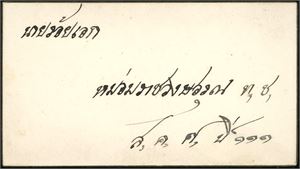 นายร้อยเอก
หม่อมราชวงษอรุณ ท, ช,
ส, ค, ศ, ปี ๑๑๑